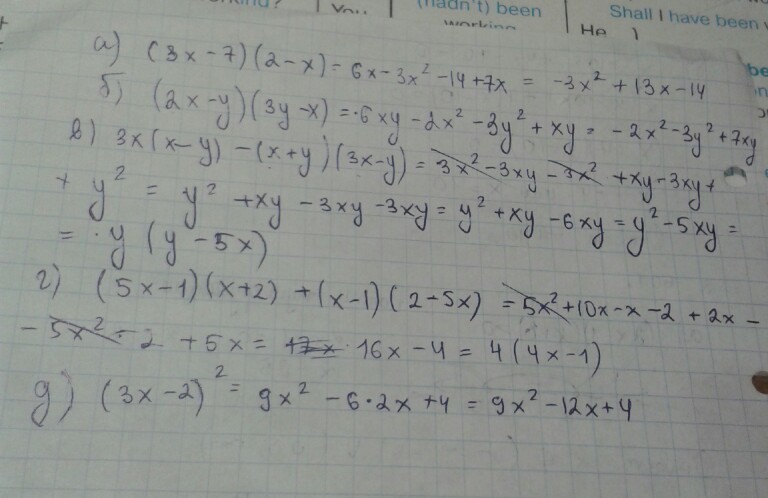 (hadn't) been
working
Shall I have been
He
а) (3x-7)(2-x)= 6x-3x²-14+7x = -3x²+13x-14
б) (2x-y)(3y-x)=6xy-2x²-3y²+xy= -2x²-3y²+7xy
в) 3x(x-y)-(x+y)(3x-y)=3x²-3xy-3x²+xy-3xy+
+y² = y²+xy-3xy-3xy=y²+xy-6xy=y²-5xy=
= y(y-5x)
г) (5x-1)(x+2)+(x-1)(2-5x)=5x²+10x-x-2+2x-
-5x²-2+5x= 16x-4=4(4x-1)
д) (3x-2)²= 9x²-6·2x+4=9x²-12x+4